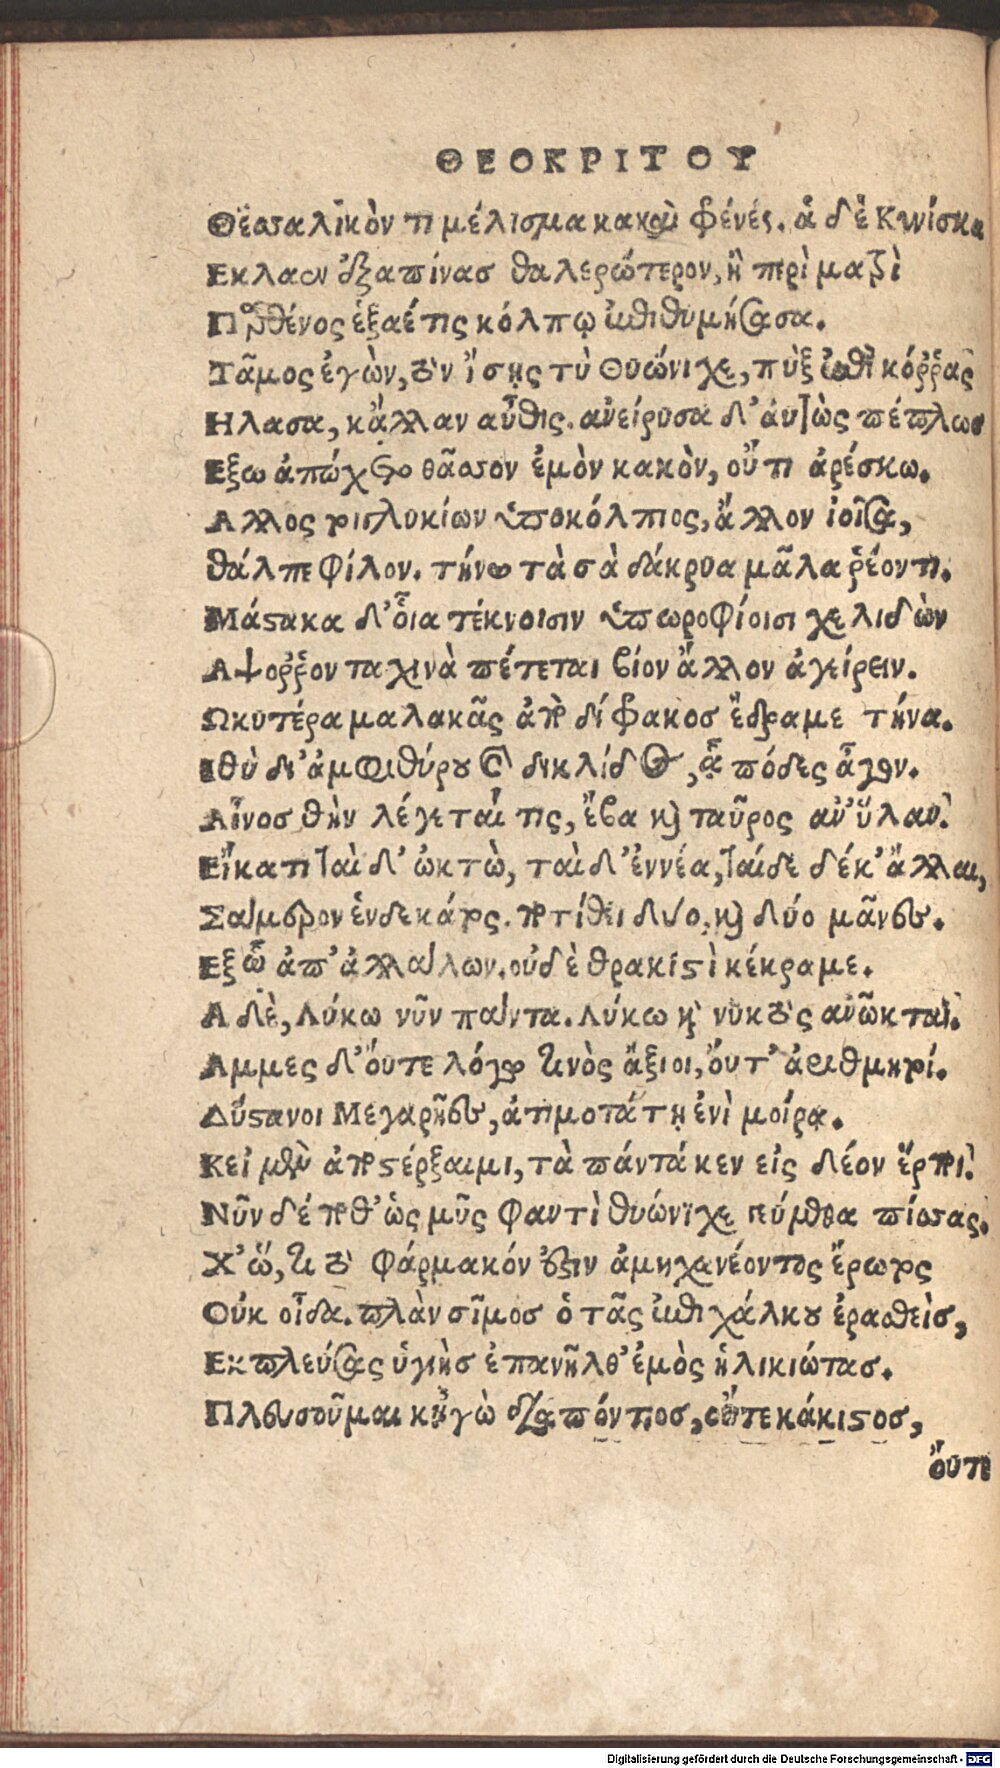 ΘΕΟΚΡΙΤΟΥ
Θεσσαλικὸν τι μέλισμα κακαὶ φρένες. ἁ δὲ Κωνίσκα
Εκλαεν ἐξαπίνας θαλερώτερον, ἢ περὶ μαζὶ
Παρθένος ἑξαέτις κόλπῳ ἐπιθυμήσασα.
Τᾶμος ἐγὼν, τὸν ἴσῃς τὺ Θυώνιχε, πὺξ ἐπὶ κόῤῥας
Ηλασα, κᾄλλαν αὖθις. ἀνείρυσα δ' αὐτὼς πέπλως
Εξω ἀπώχετο θᾶσσον ἐμὸν κακὸν, οὔτι ἀρέσκω.
Αλλος τις γλυκίων ὑποκόλπιος, ἄλλον ἰοῖσα,
θάλπε φίλον. τήνῳ τὰ σὰ δάκρυα μᾶλα ῥέοντι.
Μάστακα δ' οἷα τέκνοισιν ὑπωροφίοισι χελιδὼν
Αψοῤῥον ταχινὰ πέτεται βίον ἄλλον ἀγείρειν.
Ωκυτέρα μαλακᾶς ἀπὸ δίφρακος ἔδραμε τήνα.
Ιθὺ δι' ἀμφιθύρου καὶ δικλίδος, ᾇ πόδες ἆγον.
Αἶνος θὴν λέγεταί τις, ἔβα καὶ ταῦρος ἀν' ὕλαν.
Εἴκατι ταὶ δ' ὠκτὼ, ταὶ δ' ἐννέα, ταίδε δέκ' ἄλλαι,
Σάμερον ἑνδεκάτας. ποτίθει δύο, καὶ δύο μᾶνες.
Εξ ὧ ἀπ' ἀλλάλων. οὐδὲ θρακιστὶ κέκραμε.
Α δὲ, Λύκω νῦν πάντα. Λύκω καὶ νυκτὸς ἀνῶκται.
Αμμες δ' οὔτε λόγω τινὸς ἄξιοι, οὔτ' ἀριθμητοί.
Δύστανοι Μεγαρῆες, ἀτιμοτάτῃ ἐνὶ μοίρᾳ.
Κεἰ μὲν ἀποστέρξαιμι, τὰ πάντα κεν εἰς δέον ἕρποι.
Νῦν δέ ποθ' ὡς μῦς φαντὶ θυώνιχε γεύμεθα πίσσας.
Χ' ὥ, τι τὸ φάρμακόν ἐστιν ἀμηχανέοντος ἔρωτος
Οὐκ οἶδα. πλὰν σῖμος ὁ τᾶς ἐπιχάλκου ἐρασθεὶς,
Εκπλεύσας ὑγιὴς ἐπανῆλθ' ἐμὸς ἡλικιώτας.
Πλευσοῦμαι κἠγὼ διαπόντιος, οὔτε κάκιστος,
οὔτε
Digitalisierung gefördert durch die Deutsche Forschungsgemeinschaft - DFG